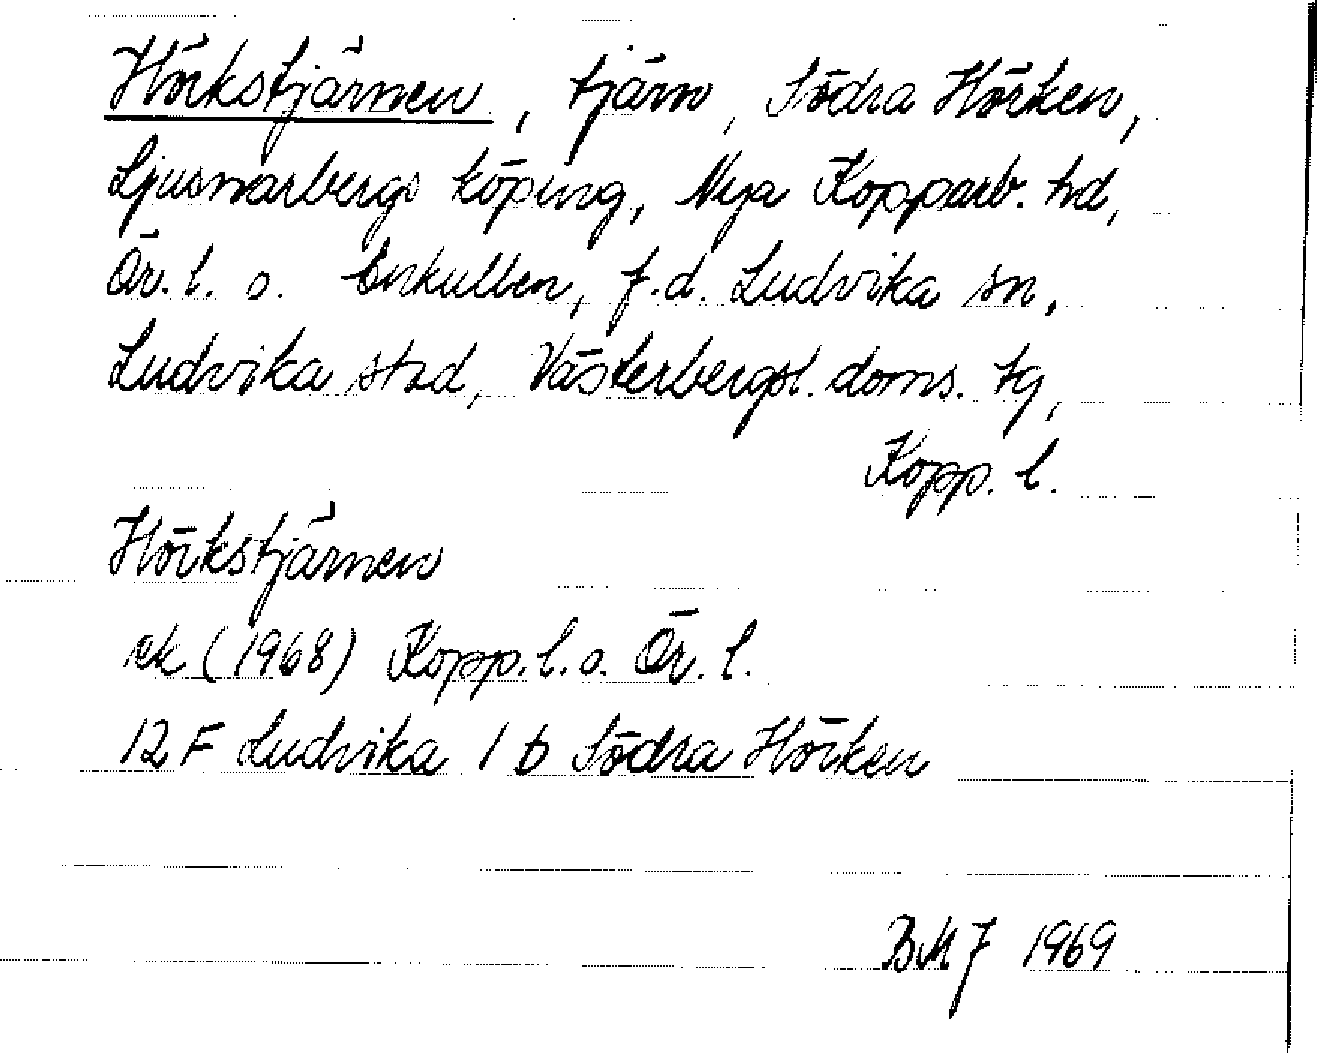 Hörkstjärnen, tjärn, Södra Hörken,
Ljusnarbergs köping, Nya Kopparb. hd,
Ör. l. o. Enkullen, f.d. Ludvika sn,
Ludvika stad, Västerbergsl. doms. tg,
Kopp. l.
Hörkstjärnen
ek (1968) Kopp. l. o. Ör. l.
12 F Ludvika 1 b Södra Hörken
BMJ 1969